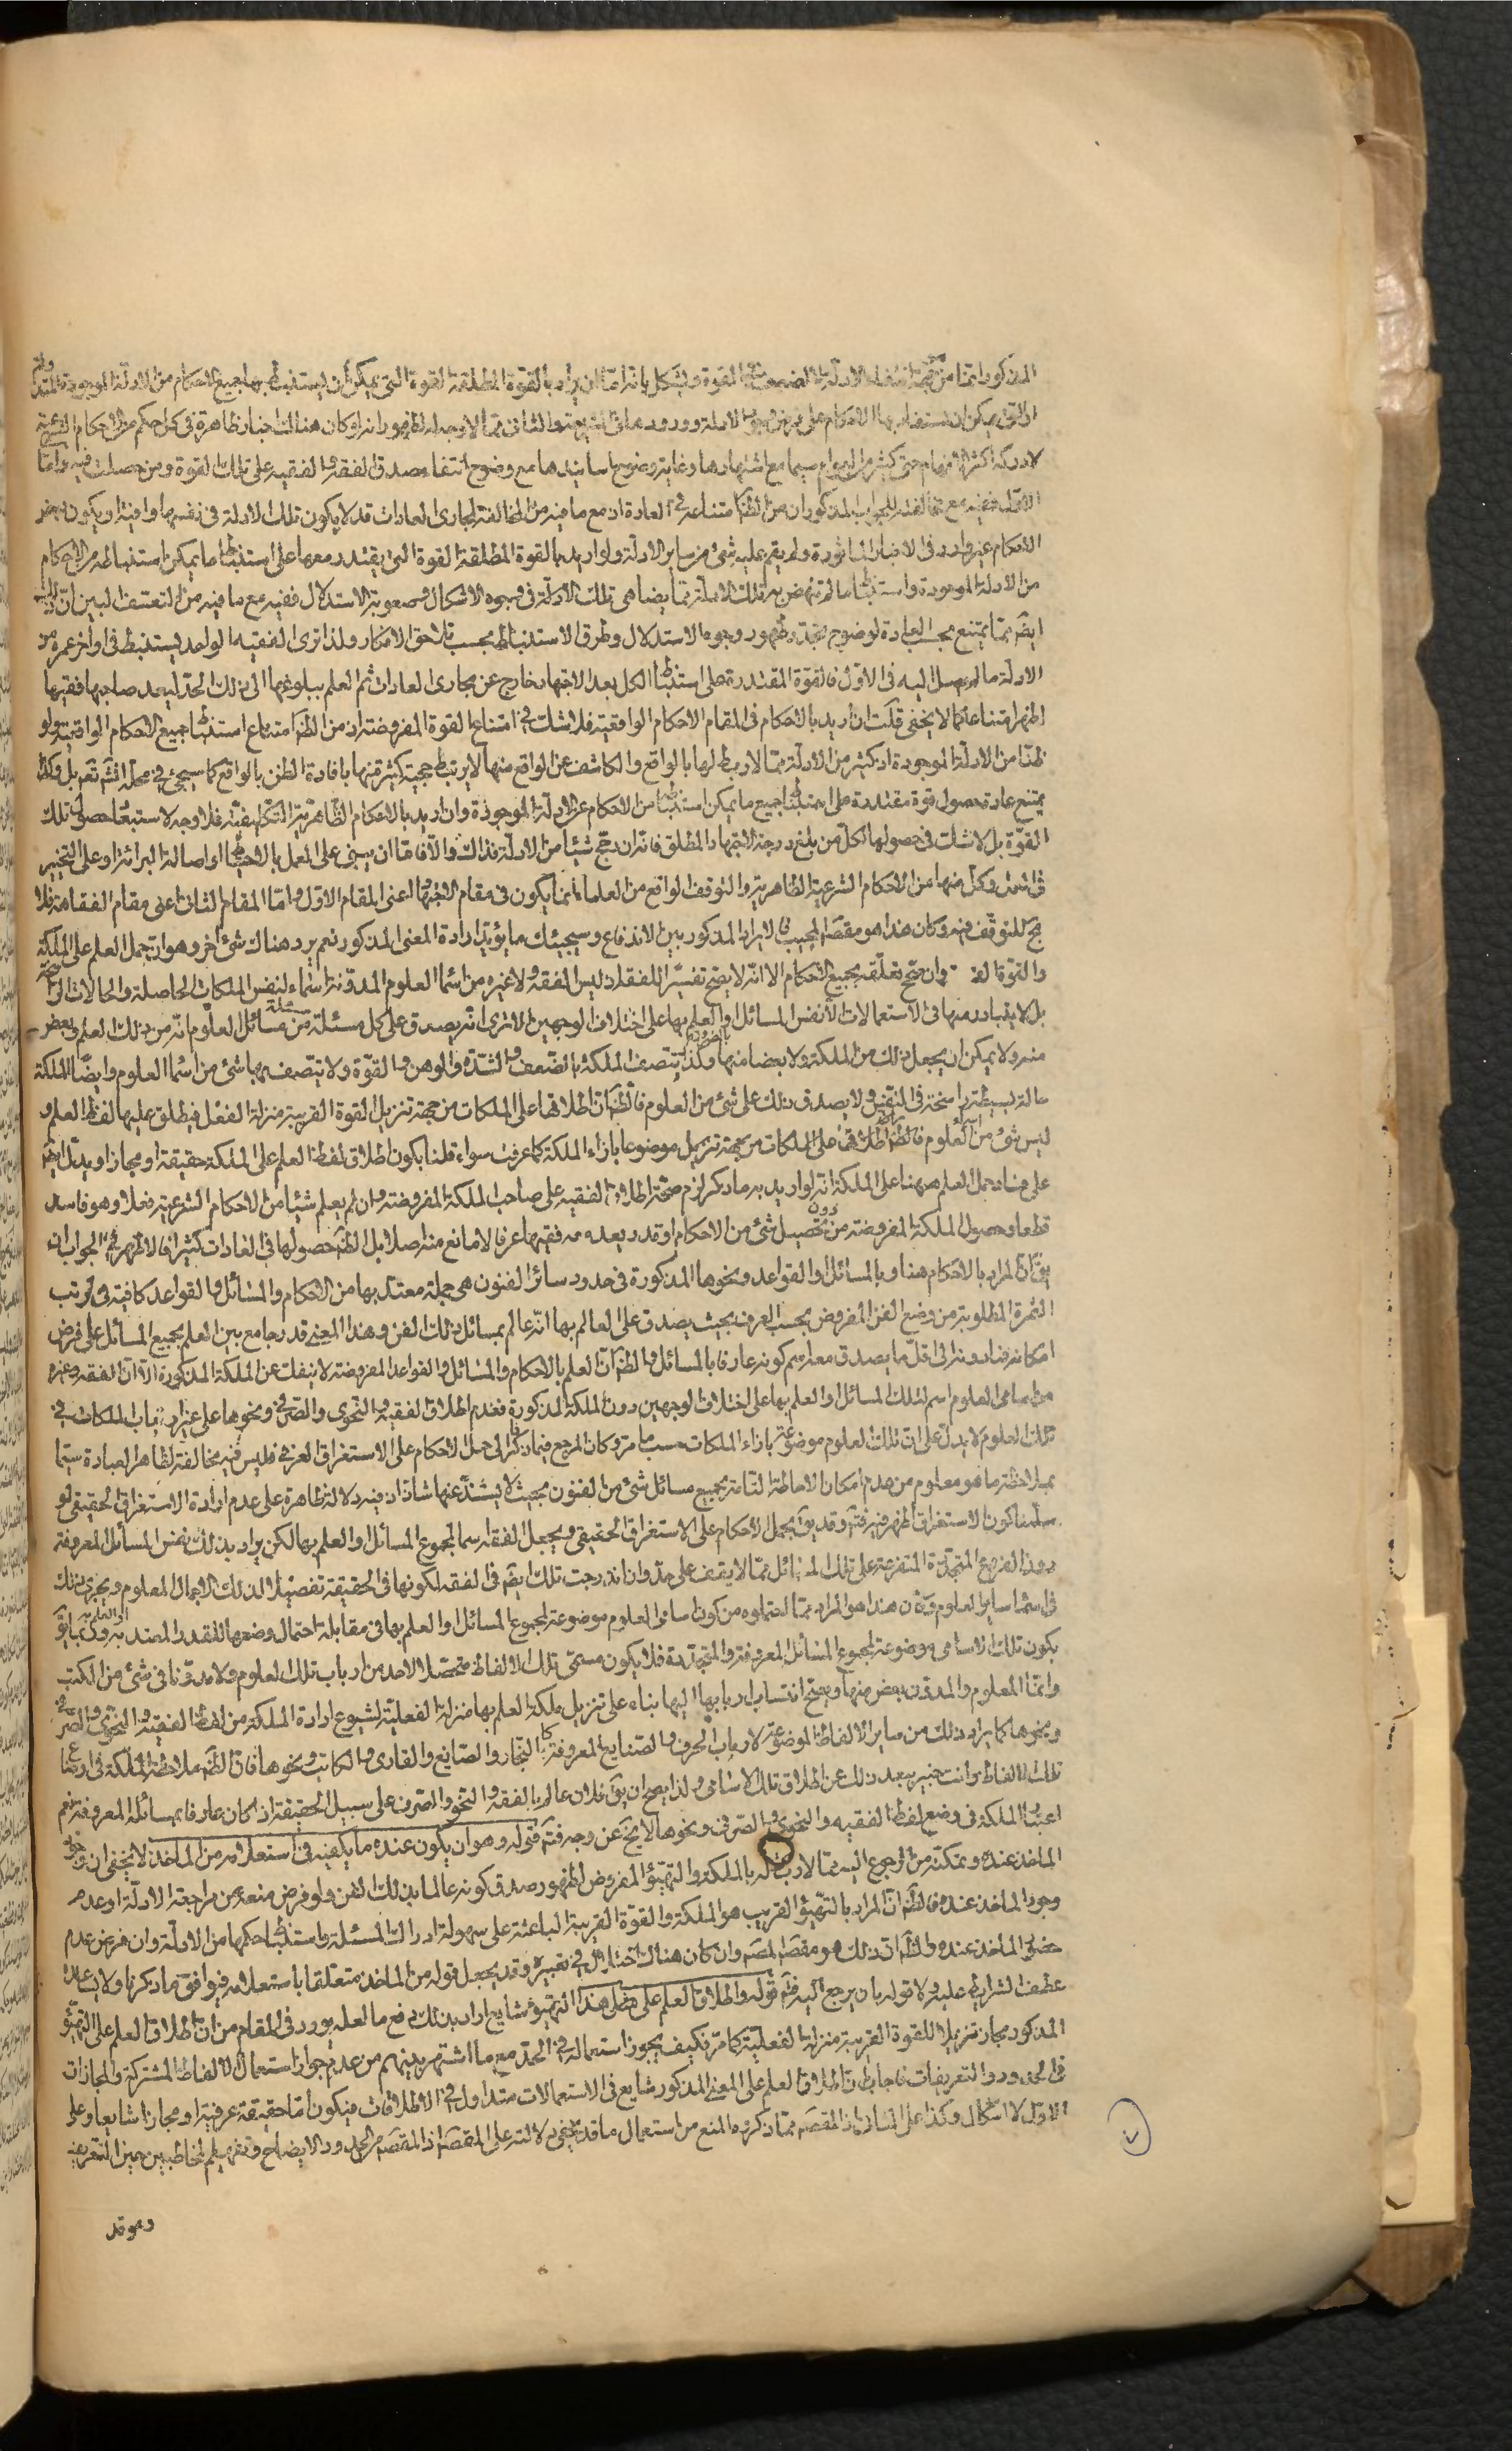 المذكور انما من جهة انتفاء الادلة لا لضعف القوة ويشكل بانه اما ان يراد بالقوة المطلقة القوة التى يمكن ان يستنبط بها جميع الاحكام من الادلة الموجودة
او التى يمكن ان يستنبط بها الاحكام على فرض وجود الادلة وورودها فى الشريعة والثانى مما لا وجه له لظهور انه لو كان هناك اخبار ظاهرة فى كل حكم من الاحكام الشرعية
لادركه اكثر الافهام حتى كثير من العوام سيما مع اشتهارها وغاية وضوح اسانيدها مع وضوح انتفاء صدق الفقه والفقيه على تلك القوة ومن حصلت فيه واما
الاول ففيه مع مخالفته للجواب المذكور ان من الظ امتناعه فى العادة اذ مع ما فيه من المخالفة لمجارى العادات قد لا يكون تلك الادلة فى نفسها وافية او يكون بعض
الاحكام غير وارد فى الاخبار الماثورة ولم يقم عليه شئ من ساير الادلة ولو اريد بالقوة المطلقة القوة التى يقتدر معها على استنباط ما يمكن استنباطه من الاحكام
من الادلة الموجودة واستنباط ما لم تنهض به تلك الادلة مما يضاهى تلك الادلة فى وجوه الاشكال وصعوبة الاستدلال ففيه مع ما فيه من التعسف البين ان ذلك
ايضا مما يمتنع بحسب العادة لوضوح تجدد ظهور وجوه الاستدلال وطرق الاستنباط بحسب تلاحق الافكار ولذا ترى الفقيه الواحد يستنبط فى اواخر عمره من
الادلة ما لم يصل اليه فى الاول فالقوة المقتدرة على استنباط الكل بعد الاجتهاد خارج عن مجارى العادات ثم العلم ببلوغها الى ذلك الحد ليعد صاحبها فقيها
اظهر امتناعا كما لا يخفى قلت ان اريد بالاحكام فى المقام الاحكام الواقعية فلا شك فى امتناع القوة المفروضة اذ من الظ امتناع استنباط جميع الاحكام الواقعية ولو
ظنا من الادلة الموجودة اذ كثير من الادلة مما لا ربط لها بالواقع والكاشف عن الواقع منها لا يرتبط حجية كثير منها بافادة الظن بالواقع كما سيجئ فى محله انش تعم بل وكذا
يمتنع عادة حصول قوة مقتدرة على استنباط جميع ما يمكن استنباطه من الاحكام عن الادلة الموجودة وان اريد بالاحكام الظاهرية التكليفية فلا وجه لاستبعاد حصول تلك
القوة بل لا شك فى حصولها لكل من بلغ درجة الاجتهاد المطلق فانه ان رجح شيئا من الادلة فذاك والا فاما ان يبنى على العمل بالاحتياط او اصالة البرائة او على التخيير
وكل منها من الاحكام الشرعية الظاهرية والتوقف الواقع من العلماء انما يكون فى مقام الاجتهاد اعنى المقام الاول واما المقام الثانى اعنى مقام الفقاهة فلا
مح للتوقف فيه وكان هذا هو مقصود المجيب فالايراد المذكور بين الاندفاع وسيجيئك ما يؤيد ارادة المعنى المذكور نعم يرد هناك شئ اخر وهو ان حمل العلم على الملكة
والقوة وان صح تعلقه بجميع الاحكام الا انه لا يصح تفسيرا للفقه اذ ليس الفقه ولا غيره من اسماء العلوم المدونة اسماء لنفس الملكات الحاصلة والحالات الراسخة
بل لا يتبادر منها فى الاستعمالات الا نفس المسائل او العلم بها على اختلاف الوجهين الا ترى انه يصدق على كل مسئلة من مسائل العلوم انه من ذلك العلم وبعض
منه ولا يمكن ان يجعل ذلك من الملكة ولا بعضا منها وكذا يتصف الملكة بالضعف والشدة والوهن والقوة ولا يتصف بها شئ من اسماء العلوم وايضا الملكة
حالة بسيطة راسخة فى النفس ولا يصدق ذلك على شئ من العلوم فالظ ان اطلاقها على الملكات من جهة تنزيل القوة القريبة منزلة الفعل فيطلق عليها لفظ العلم و
ليس شئ من اسماء العلوم موضوعا بازاء الملكة كما عرفت سواء قلنا بكون اطلاق لفظ العلم على الملكة حقيقة او مجازا ويدل ايضا
على فساد حمل العلم ههنا على الملكة انه لو اريد به ما ذكر لزم صحة اطلاق الفقيه على صاحب الملكة المفروضة وان لم يعلم شيئا من الاحكام الشرعية فعلا وهو فاسد
قطعا وحصول الملكة المفروضة من دون تحصيل شئ من الاحكام او قدر يعد معه فقيها عرفا لا مانع منه اصلا بل الظ حصولها فى العادات كثيرا فالاظهر فى الجواب ان
يق ان المراد بالاحكام هنا وبالمسائل او القواعد ونحوها المذكورة فى حدود سائر الفنون هى جملة معتد بها من الاحكام والمسائل والقواعد كافية فى ترتب
الثمرة المطلوبة من وضع الفن المفروض بحسب العرف بحيث يصدق على العالم بها انه عالم بمسائل ذلك الفن وهذا المعنى قد يجامع بين العلم بجميع المسائل على فرض
امكانه فنازلا الى اقل ما يصدق معه اسم كونه عارفا بالمسائل والظ ان العلم بالاحكام والمسائل والقواعد المفروضة لا ينفك عن الملكة المذكورة الا ان الفقه وغيره
من اسامى العلوم اسم لتلك المسائل او العلم بها على اختلاف الوجهين دون الملكة المذكورة فعدم اطلاق الفقيه والنحوى والصرفى ونحوها على غير ارباب الملكات فى
تلك العلوم لا يدل على ان تلك العلوم موضوعة بازاء الملكات حسب ما مر وكان المرجع فيما ذكرنا الى حمل الاحكام على الاستغراق العرفى فليس فيه مخالفة لظاهر العبادة سيما
بملاحظة ما هو معلوم من عدم امكان الاحاطة التامة بجميع مسائل شئ من الفنون بحيث لا يشذ عنها شاذ اذ فيه دلالة ظاهرة على عدم ارادة الاستغراق الحقيقى لو
سلمنا كون الاستغراق اظهر فيه فتم وقد يق بحمل الاحكام على الاستغراق الحقيقى ويجعل الفقه اسما لمجموع المسائل والعلم بها لكن يراد بذلك نفس المسائل المعروفة
دون الفروع المتجددة المتفرعة على تلك المسائل مما لا يقف على حد وان اندرجت تلك ايضا فى الفقه لكونها فى الحقيقة تفصيلا لذلك الاجمال المعلوم ويجرى ذلك
فى اسماء ساير العلوم وكان هذا هو المراد مما احتملوه من كون اسامى العلوم موضوعة لمجموع المسائل او العلم بها فى مقابلة احتمال وضعها للقدر المعتد به
بكون تلك الاسامى موضوعة لمجموع المسائل المعروفة والمتجددة فلا يكون مسمى تلك الالفاظ متحصلا لاحد من ارباب تلك العلوم ولا مدونا فى شئ من الكتب
وانما المعلوم والمدون بعض منها ويصح انتساب اربابها اليها بناء على تنزيل ملكة العلم بها منزلة الفعلية لشيوع ارادة الملكة من لفظ الفقيه والنحوى والصرفى
ونحوها كما يراد ذلك من ساير الالفاظ الموضوعة لارباب الحرف والصنايع المعروفة كالنجار والصانع والقارى والكاتب ونحوها فان الظ ملاحظة الملكة فى اوضاع
تلك الالفاظ وانت خبير ببعد ذلك عن اطلاق تلك الاسامى ولذا يصح ان يق فلان عالم بالفقه والنحو والصرف على سبيل الحقيقة اذا كان عارفا بمسائله المعروفة نعم
اعتبار الملكة فى وضع لفظ الفقيه والنحوى والصرفى ونحوها لا يخ عن وجه فتم قوله وهو ان يكون عنده ما يكفيه فى استعلامه من الماخذ لا يخفى ان وجود
الماخذ عنده وتمكنه من الرجوع اليه مما لا ربط له بالملكة والتهيؤ المفروض لظهور صدق كونه عالما بذلك الفن ولو فرض منعه من مراجعة الادلة او عدم
وجود الماخذ عنده فالظ ان المراد بالتهيؤ القريب هو الملكة والقوة القريبة الباعثة على سهولة ادراك المسئلة واستنباط حكمها من الادلة وان فرض عدم
حضور الماخذ عنده والظ ان ذلك هو مقصود المص وان كان هناك اختلال فى تعبيره وقد يجعل قوله من الماخذ متعلقا باستعلامه فيوافق ما ذكرنا ولا يساعده
عطف الشرايط عليه ولا قوله بان يرجع اليه فتم قوله واطلاق العلم على مثل هذا التهيؤ شايع اراد بذلك دفع ما لعله يورد فى المقام من ان اطلاق العلم على التهيؤ
المذكور مجاز تنزيلا للقوة القريبة منزلة الفعلية كما مر فكيف يجوز استعماله فى الحد مع ما اشتهر بينهم من عدم جواز استعمال الالفاظ المشتركة والمجازات
فى الحدود والتعريفات فاجاب ان اطلاق العلم على المعنى المذكور شايع فى الاستعمالات متداول فى الاطلاقات فيكون اما حقيقة عرفية او مجازا شايعا وعلى
الاول لا اشكال وكذا على الثانى اذ المقص مما ذكروه المنع من استعمال ما قد يخفى دلالته على المقص اذ المقص من الحدود الايضاح وتفهيم المخاطبين حين التعريف
وهو قد